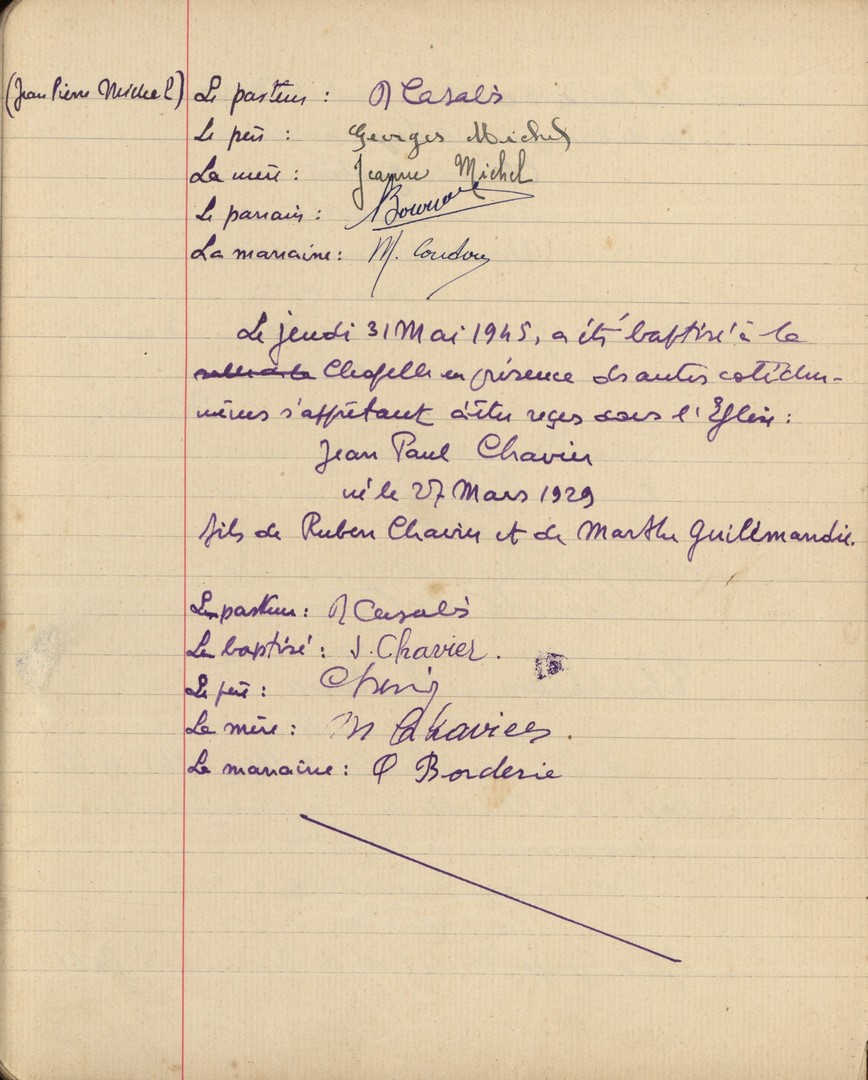 (Jean Pierre Michel) Le pasteur : A Casalis
Le père : Georges Michel
La mère : Jeanne Michel
Le parrain :
La marraine : M. Coudou
Le jeudi 31 Mai 1945, a été baptisé à la
Chapelle en présence des autres catéchu-
mènes s'apprêtant à être reçus dans l'Eglise :
Jean Paul Chavier
né le 27 Mars 1929
fils de Ruben Chavier et de Marthe Guillemandie.
Le pasteur : A Casalis
Le baptisé : J. Chavier.
Le père :
La mère : M Chavier.
La marraine : O Borderie